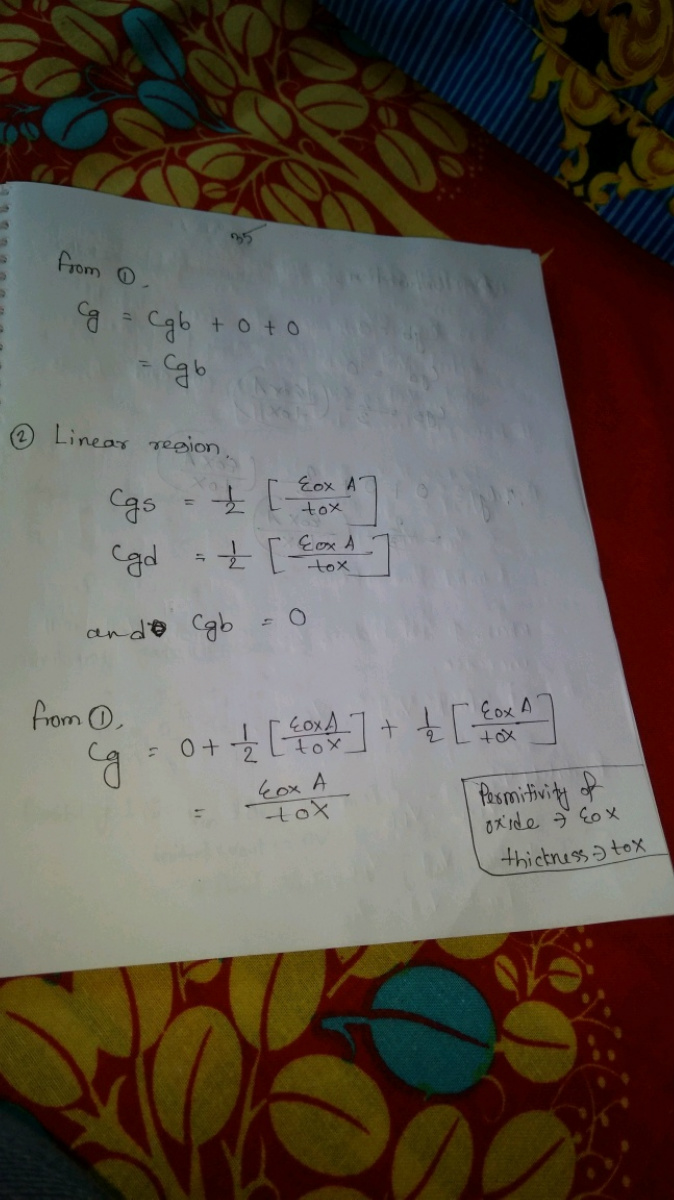 35
from ①,
Cg = Cgb + 0 + 0
= Cgb
② Linear region,
Cgs = 1/2 [εox A / tox]
Cgd = 1/2 [εox A / tox]
and Cgb = 0
from ①,
Cg = 0 + 1/2 [εox A / tox] + 1/2 [εox A / tox]
= εox A / tox
Permitivity of
oxide → εox
thickness → tox